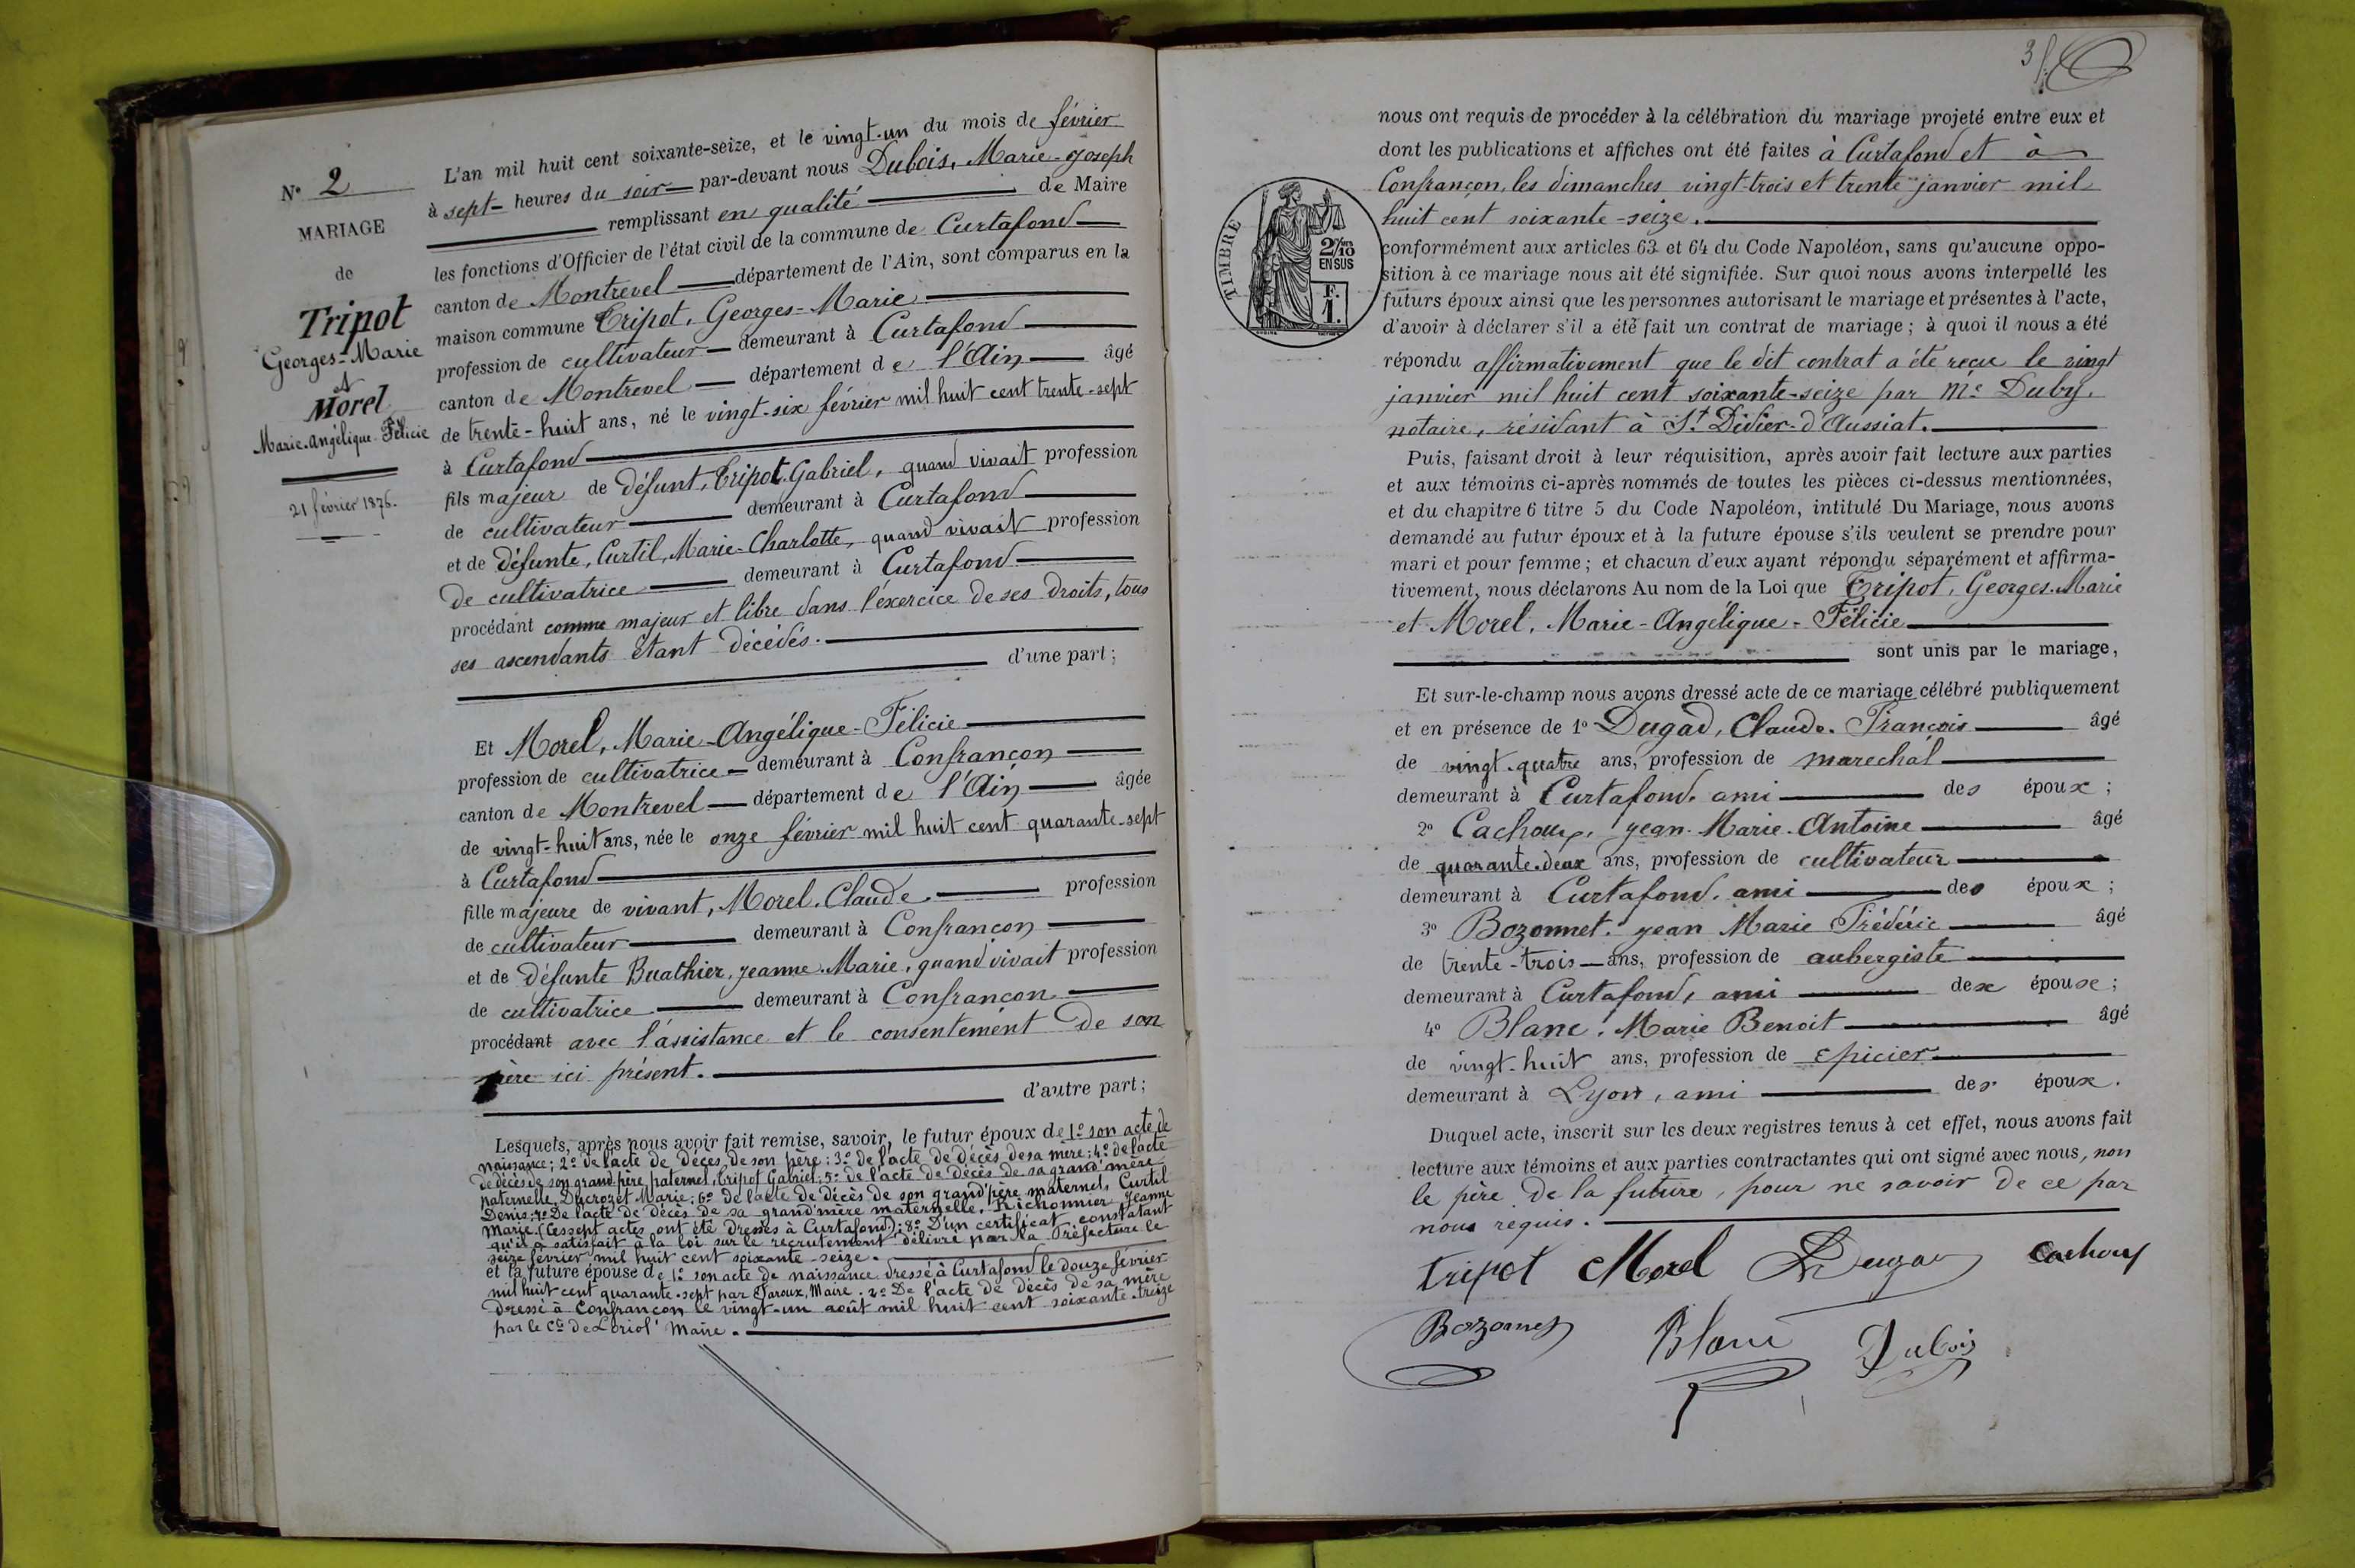 N° 2
MARIAGE
de
Tripot
Georges-Marie
et
Morel
Marie-Angélique-Félicie
21 février 1876.
L'an mil huit cent soixante-seize, et le vingt-un du mois de février
à sept heures du soir par-devant nous Dubois, Marie-Joseph
remplissant en qualité de Maire
les fonctions d'Officier de l'état civil de la commune de Curtafond
canton de Montrevel département de l'Ain, sont comparus en la
maison commune Tripot, Georges-Marie
profession de cultivateur demeurant à Curtafond
canton de Montrevel département de l'Ain âgé
de trente-huit ans, né le vingt-six février mil huit cent trente-sept
à Curtafond
fils majeur de défunt, Tripot, Gabriel, quand vivait profession
de cultivateur demeurant à Curtafond
et de défunte, Curtil, Marie-Charlotte, quand vivait profession
de cultivatrice demeurant à Curtafond
procédant comme majeur et libre dans l'éxercice de ses droits, tous
ses ascendants étant décédés.
d'une part;
Et Morel, Marie-Angélique-Félicie
profession de cultivatrice demeurant à Confrançon
canton de Montrevel département de l'Ain âgée
de vingt-huit ans, née le onze février mil huit cent quarante-sept
à Curtafond
fille majeure de vivant, Morel, Claude profession
de cultivateur demeurant à Confrançon
et de défunte Buathier, Jeanne-Marie, quand vivait profession
de cultivatrice demeurant à Confrançon
procédant avec l'assistance et le consentement de son
père ici présent.
d'autre part;
Lesquels, après nous avoir fait remise, savoir, le futur époux de 1° son acte de
naissance; 2° de l'acte de décès de son père; 3° de l'acte de décès de sa mère; 4° de l'acte
de décès de son grand'père paternel, Tripot Gabriel; 5° de l'acte de décès de sa grand'mère
paternelle, Ducrozet Marie; 6° de l'acte de décès de son grand'père maternel, Curtil
Denis; 7° De l'acte de décès de sa grand'mère maternelle, Richonnier Jeanne
Marie. (Ces sept actes ont été dressés à Curtafond); 8° D'un certificat constatant
qu'il a satisfait à la loi sur le recrutement délivré par la Préfecture le
seize février mil huit cent soixante-seize.
et la future épouse de 1° son acte de naissance dressé à Curtafond le douze février
mil huit cent quarante-sept par Maire. 2° De l'acte de décès de sa mère
dressé à Confrançon le vingt-un août mil huit cent soixante-treize
par le Cte de Loriol Maire.
3
nous ont requis de procéder à la célébration du mariage projeté entre eux et
dont les publications et affiches ont été faites à Curtafond et à
Confrançon, les dimanches vingt-trois et trente janvier mil
huit cent soixante-seize.
TIMBRE
2/10
EN SUS
F.
1.
conformément aux articles 63 et 64 du Code Napoléon, sans qu'aucune oppo-
sition à ce mariage nous ait été signifiée. Sur quoi nous avons interpellé les
futurs époux ainsi que les personnes autorisant le mariage et présentes à l'acte,
d'avoir à déclarer s'il a été fait un contrat de mariage; à quoi il nous a été
répondu affirmativement que le dit contrat a été reçu le vingt
janvier mil huit cent soixante-seize par Me Duby,
notaire, résidant à St Didier-d'Aussiat.
Puis, faisant droit à leur réquisition, après avoir fait lecture aux parties
et aux témoins ci-après nommés de toutes les pièces ci-dessus mentionnées,
et du chapitre 6 titre 5 du Code Napoléon, intitulé Du Mariage, nous avons
demandé au futur époux et à la future épouse s'ils veulent se prendre pour
mari et pour femme; et chacun d'eux ayant répondu séparément et affirma-
tivement, nous déclarons Au nom de la Loi que Tripot, Georges-Marie
et Morel, Marie-Angélique-Félicie
sont unis par le mariage,
Et sur-le-champ nous avons dressé acte de ce mariage célébré publiquement
et en présence de 1° Dugad, Claude-François âgé
de vingt-quatre ans, profession de marechal
demeurant à Curtafond, ami des époux;
2° Cachoux, Jean-Marie-Antoine âgé
de quarante-deux ans, profession de cultivateur
demeurant à Curtafond, ami des époux;
3° Bozonnet, Jean Marie Frédéric âgé
de trente-trois ans, profession de aubergiste
demeurant à Curtafond, ami des époux;
4° Blanc, Marie Benoit âgé
de vingt-huit ans, profession de Epicier
demeurant à Lyon, ami des époux.
Duquel acte, inscrit sur les deux registres tenus à cet effet, nous avons fait
lecture aux témoins et aux parties contractantes qui ont signé avec nous, non
le père de la future, pour ne savoir de ce par
nous requis.
tripot Morel Dugad Cachoux
Bozonnet Blanc Dubois